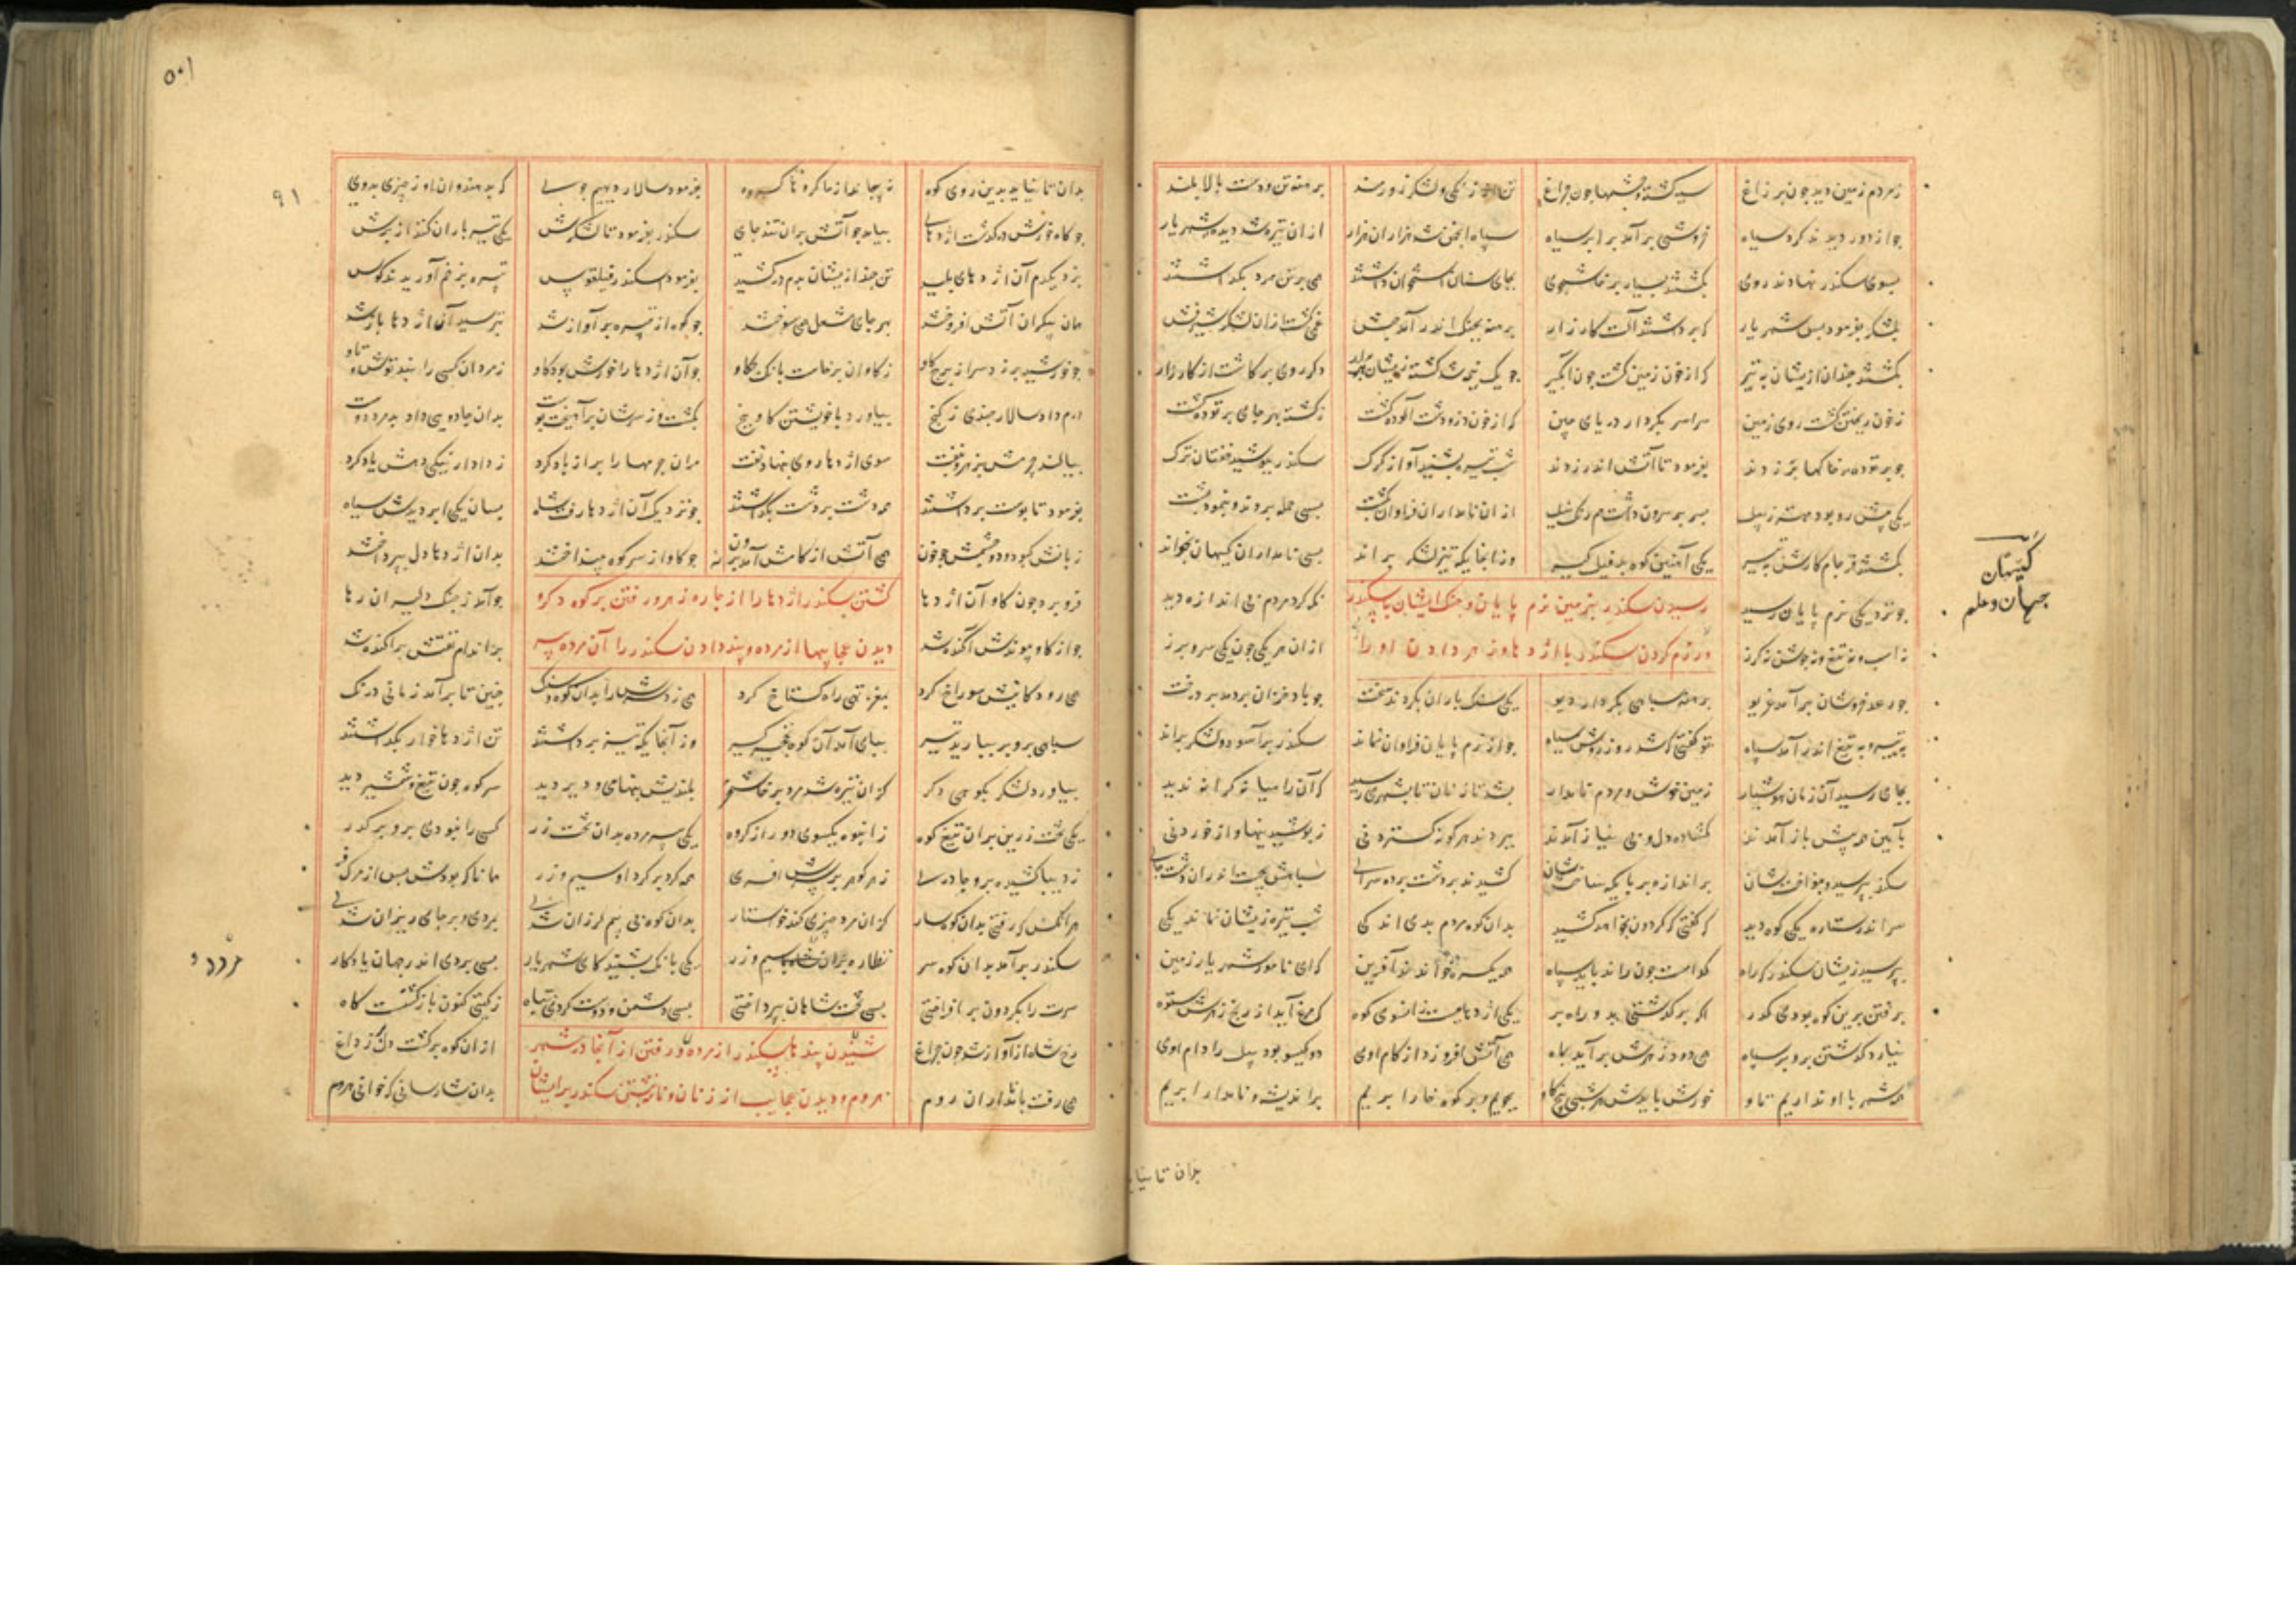 زمردم زمین دید جون بر زاغ سیه کشته و جشمها جون جراغ تن اور زنکی و لشکر زورمند برهنه تن و دست بالا بلند
جو از دور دیدند کرد سپاه خروشی برآمد بر ابر سیاه سپاه انجمن شد هزاران هزار از ان تیره شد دیده شهریار
بسوی سکندر نهادند روی بکشتند بسیار برخاشجوی بجای سنان استخوان داشتند همی بر تن مرد بکذاشتند
بلشکر بفرمود بس شهریار که برداشتند آلت کارزار برهنه بجنک اندر آمد حبش غمی کشت از ان لشکر شیرفش
بکشتند جندان ازیشان به تیر که از خون زمین کشت جون آبکیر جو یک نیمه شد کشته زیشان دکر روی برکاشت از کارزار
زخون ریختن کشت روی زمین سراسر بکردار دریای جین که از خون در و دشت آلوده کشت زکشته بهر جای بر توده کشت
جو بر توده خاکها برزدند بفرمود تا آتش اندر زدند شب تیره بشنید آواز کرک سکندر ببوشید خفتان ترک
یکی پیش رو بود مهتر زپیل بسر بر سرون داشت همرنک نیل از ان نامداران فراوان بکشت بسی حمله بردند و ننمود بشت
بکشتند فرجام کارش به تیر یکی آهنین کوه بد فیل کیر وز انجا یکه تیز لشکر براند بسی نامداران کیهان بخواند
جو نزدیکی نرم پایان رسید رسیدن سکندر بزمین نرم پایان و جنک ایشان با سکندر نکه کرد مردم بی اندازه دید
نه اسب و نه تیغ و نه جوشن نه کرز و رزم کردن سکندر با اژدها و زهر دادن او را از ان هر یکی جون یکی سرو برز
جو رعد خروشان برآمد غریو برهنه سپاهی بکردار دیو یکی سنک باران بکردند سخت جو باد خزان بردمد بر درخت
به تیر و به تیغ اندر آمد سپاه تو کفتی که شد روز روشن سیاه جو از نرم پایان فراوان نماند سکندر برآسود و لشکر براند
بجای رسید آن زمان هوشیار زمین خوش و مردم نامدار بشد تازیان تا بشهری رسید که آن را میانه کرانه ندید
بآیین همه پیش باز آمدند کشاده دل و بی نیاز آمدند ببردند هر کونه کستردنی زبوشیدنیها و از خوردنی
سکندر بپرسید و بنواختشان بر اندازه بر پایکه ساختشان کشیدند بر دشت برده سرای سپاهش بجست اندران دشت جای
سر اندر ستاره یکی کوه دید که کفتی که کردون بخواهد کشید بدان کوه مردم بدی اندکی شب تیره زیشان نماندی یکی
بپرسید زیشان سکندر که راه کدامست جون راند باید سپاه همه یکسره خواندند آفرین که ای نامور شهریار زمین
برفتن برین کوه بودی کذر اکر برکذشتی بدو راهبر یکی اژدهاست زانسوی کوه که مرغ آید از رنج زهرش ستوه
نیارد کذشتن برو بر سپاه همی دود زهرش برآید بماه همی آتش افروزد از کام اوی دو کیسو بود پیل را دام اوی
همه شهر با او نداریم تاو خورش بایدش هر شبی پنج کاو بجویم و بر کوه خارا بریم براندیشه و نامدار ابریم
کیهان
جهان و علم
بدان تا نیا
۵۰۱
۹۱
بدان تا نیاید بدین روی کوه نپیجاند از ما کروها کروه بفرمود سالار دیهیم جوی که بدهند و آن روز جیزی بدوی
جو کاه خورش درکذشت اژدهای بیامد جو آتش بران تند جای سکندر بفرمود تا لشکرش یکی تیرباران کنند از برش
بزد یکدم آن اژدهای پلید تن جند ازیشان بدم درکشید بفرمود اسکندر فیلقوس تبیره بزخم آورید ند کوس
همان بیکران آتش افروختند بهر جای مشعل همی سوختند جو کوه از تبیره برآواز شد بترسید آن اژدها باز شد
جو خورشید برزد سر از برج کاو زکاوان برخاست بانک جکاو جو آن اژدها را خورش بود کاو زمردان کسی را نبد توش و تاو
درم داد سالار جندی زکنج بیاورد با خویشتن کاو پنج بکشت و زسرشان برآهیخت پوست بدان جادویی داد بد مرد دوست
بیاکند جرمش بزهر و نفت سوی اژدها روی بنهاد تفت مران جرمها را بر از باد کرد زدادار نیکی دهش یاد کرد
بفرمود تا بوست برداشتند همه دشت بر دشت بکذاشتند جو نزدیک آن اژدها رفت شاه بسان یکی ابر دیدش سیاه
زبانش کبود و دو جشمش جو خون همی آتش از کامش آمد برون جو کاو از سر کوه بنداختند بدان اژدها دل ببرداختند
فرو برد جون کاو آن اژدها کشتن سکندر اژدها را از جاره زهر و رفتن بر کوه دکر و جو آمد زجنک دلیران رها
جو از کاو پیوندش آکنده شد دیدن عجایبها از مرده و پند دادن سکندر را آن مرده پسر بر اندام نفتش براکنده شد
همی رودکانیش سوراخ کرد بمغز و تهی راه کستاخ کرد همی زد سرش را بدان کوه سنک جنین تا برآمد زمانی درنک
سپاهی برو بر ببارید تیر بپای آمد آن کوه نخجیر کیر وز آنجا یکه تیز برداشتند تن اژدها خوار بکذاشتند
بیاورد لشکر بکوهی دکر کزان تیره شد مرد برخاشخر بلندیش بنهای و دیر دید سر کوه جون تیغ و شمشیر دید
یکی تخت زرین بران تیغ کوه زانبوه یکسوی دور از کروه یکی پیر مرده بدان تخت زر کسی را نبودی برو بر کذر
زدیبا کشیده برو جادری زهر کوهر بر سرش افسری همه کرد بر کرد او سیم و زر همانا که بودش پس از مرک فر
هر آنکس که رفتی بدان کوهسار کزان مرد جیزی کند خواستار بدان کوه بی بیم لرزان شدی بمردی و بر جای ریزان شدی
سکندر برآمد بدان کوه سر نظاره بران مرد با سیم و زر یکی بانک بشنید کای شهریار بسی بردی اندر جهان یادکار
سرت را بکردون برافراختی بسی تخت شاهان ببرداختی بسی دشمن و دوست کردی تباه زکیتی کنون بازکشتست کاه
رخ شاه از آواز شد جون جراغ شنیدن پند ها سکندر از مرده و رفتن از آنجا در شهر از ان کوه برکشت دل پر ز داغ
همی رفت با نامداران روم هروم و دیدن عجایب از زنان و سکندر بر ایشان بدان شارسانی که خوانی هروم